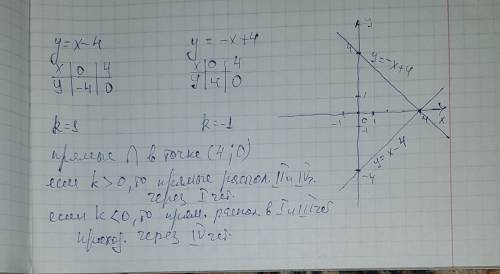 y = x-4
x 0 4
y -4 0
k=1
y = -x+4
x 0 4
y 4 0
k=-1
прямые ∩ в точке (4;0)
если k>0, то прямые распол.
через I чет.
если k<0, то прям. распол. в I и III чет
проход. через IV чет.
y
4
y=-x+4
1
-1 0 1 4 x
-1
y=x-4
-4